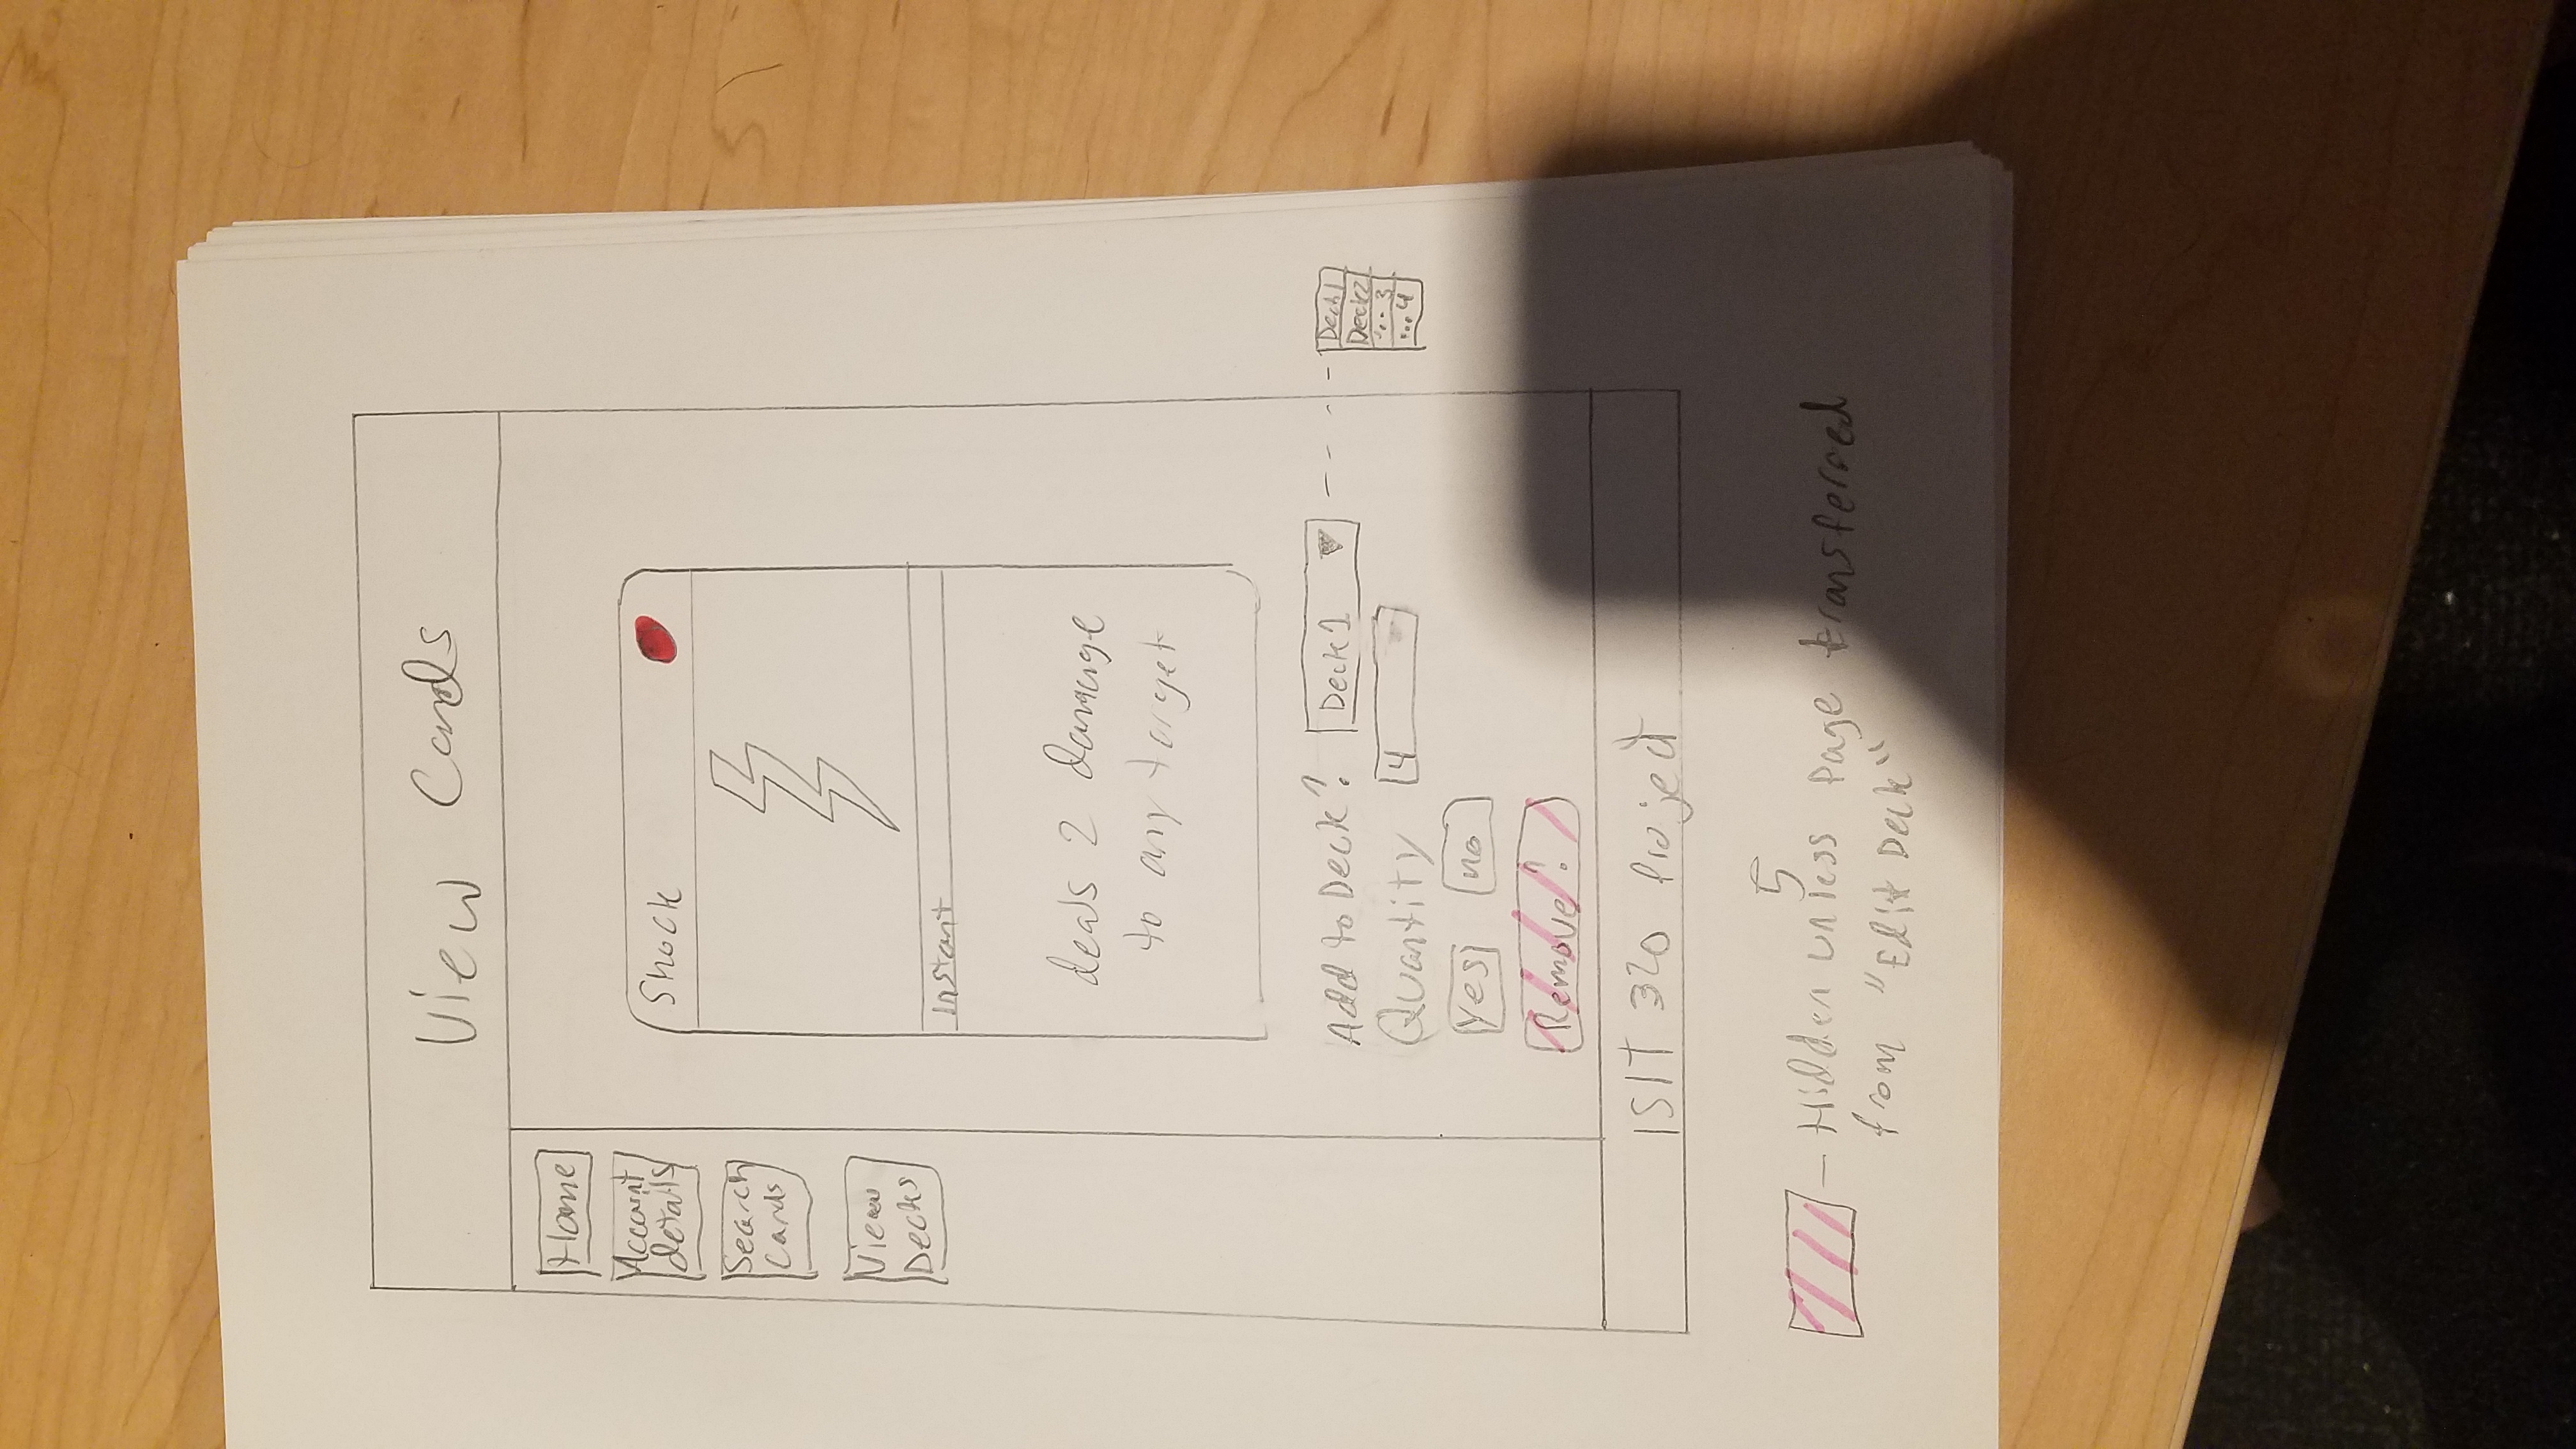 View Cards
Home
Account
details
Search
Cards
View
Decks
Shock
Instant
deals 2 damage
to any target
Add to Deck? Deck1
Deck1
Deck2
... 3
... 4
Quantity 4
yes no
Remove?
ISIT 320 Project
5
- Hidden unless page transferred
from "Edit Deck"